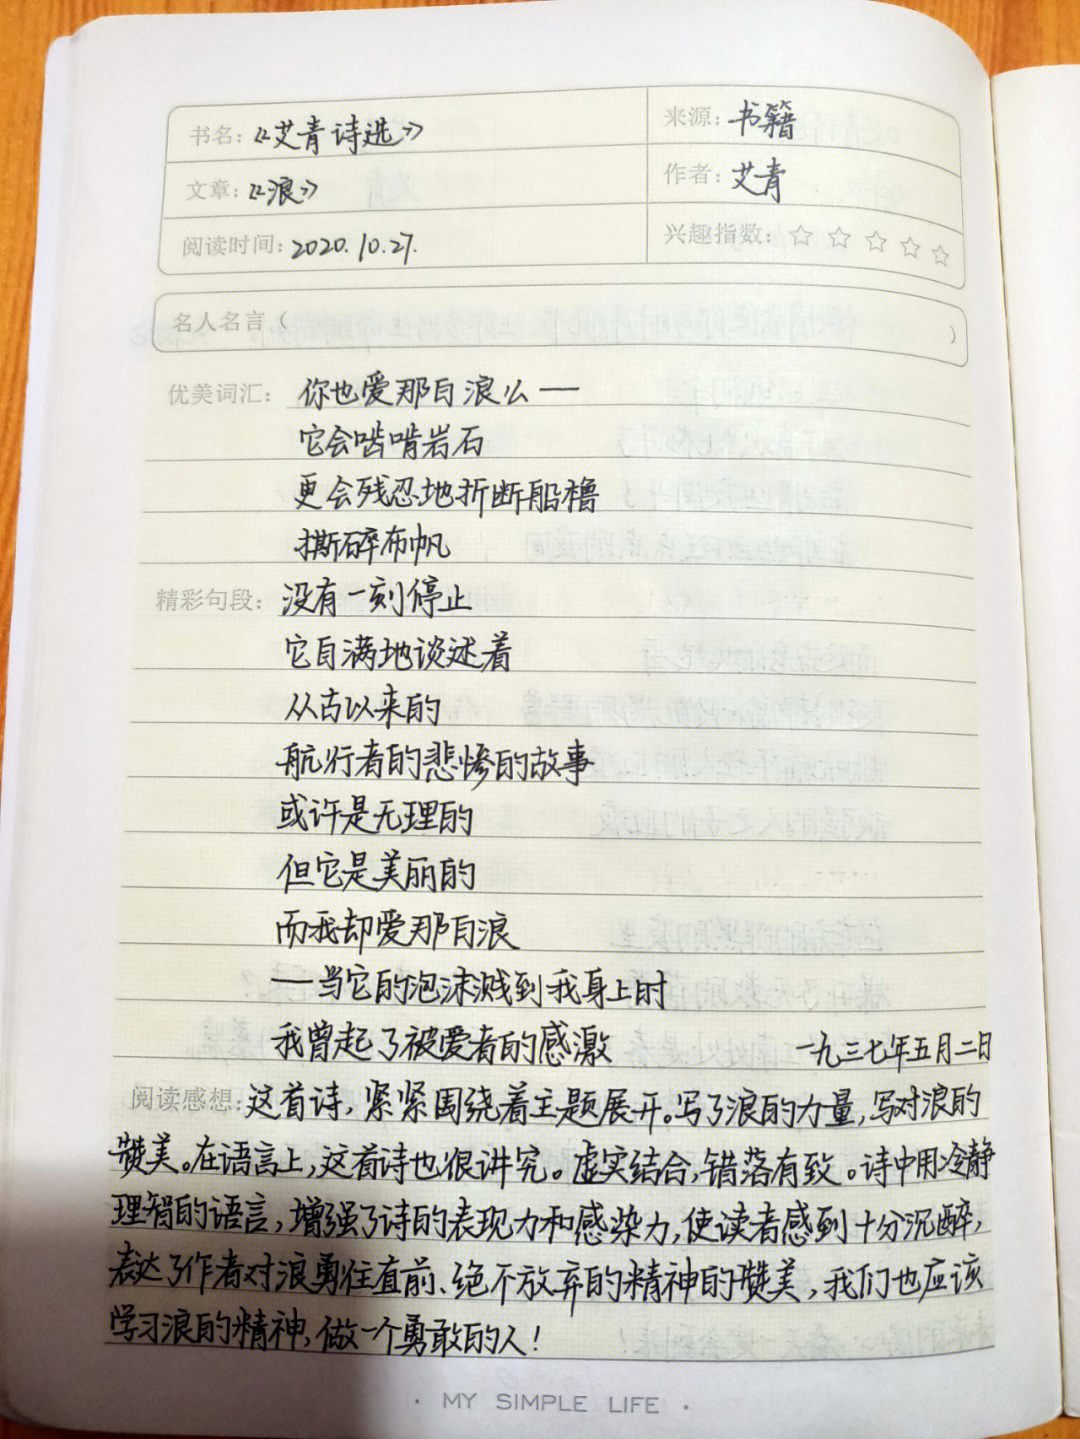 书名：《艾青诗选》 来源：书籍
文章：《浪》 作者：艾青
阅读时间：2020.10.27. 兴趣指数：☆ ☆ ☆ ☆ ☆
名人名言（ ）
优美词汇：你也爱那白浪么——
它会啮啃岩石
更会残忍地折断船橹
撕碎布帆
精彩句段：没有一刻停止
它自满地谈述着
从古以来的
航行者的悲惨的故事
或许是无理的
但它是美丽的
而我却爱那白浪
—当它的泡沫溅到我身上时
我曾起了被爱者的感激 一九三七年五月二日
阅读感想：这首诗，紧紧围绕着主题展开。写了浪的力量，写对浪的
赞美。在语言上，这首诗也很讲究。虚实结合，错落有致。诗中用冷静
理智的语言，增强了诗的表现力和感染力，使读者感到十分沉醉，
表达了作者对浪勇往直前、绝不放弃的精神的赞美，我们也应该
学习浪的精神，做一个勇敢的人！
· MY SIMPLE LIFE ·